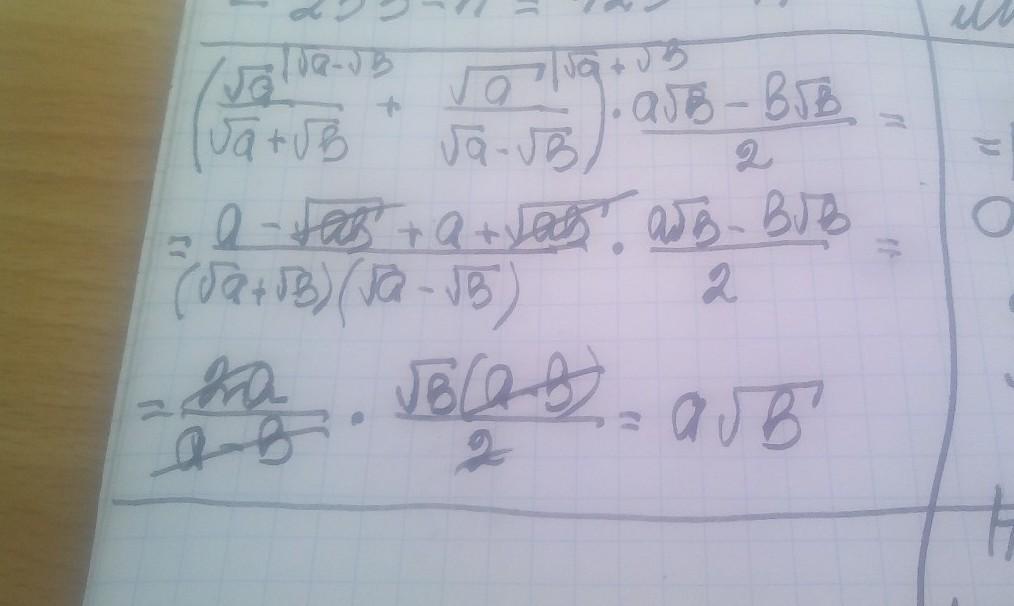 = 253 - 11 =
(√a |√a-√B / √a+√B + √a |√a+√B / √a-√B) · a√B - B√B / 2 =
= a - √aB + a + √aB / (√a+√B)(√a-√B) · a√B - B√B / 2 =
= 2a / a-B · √B(a-B) / 2 = a√B